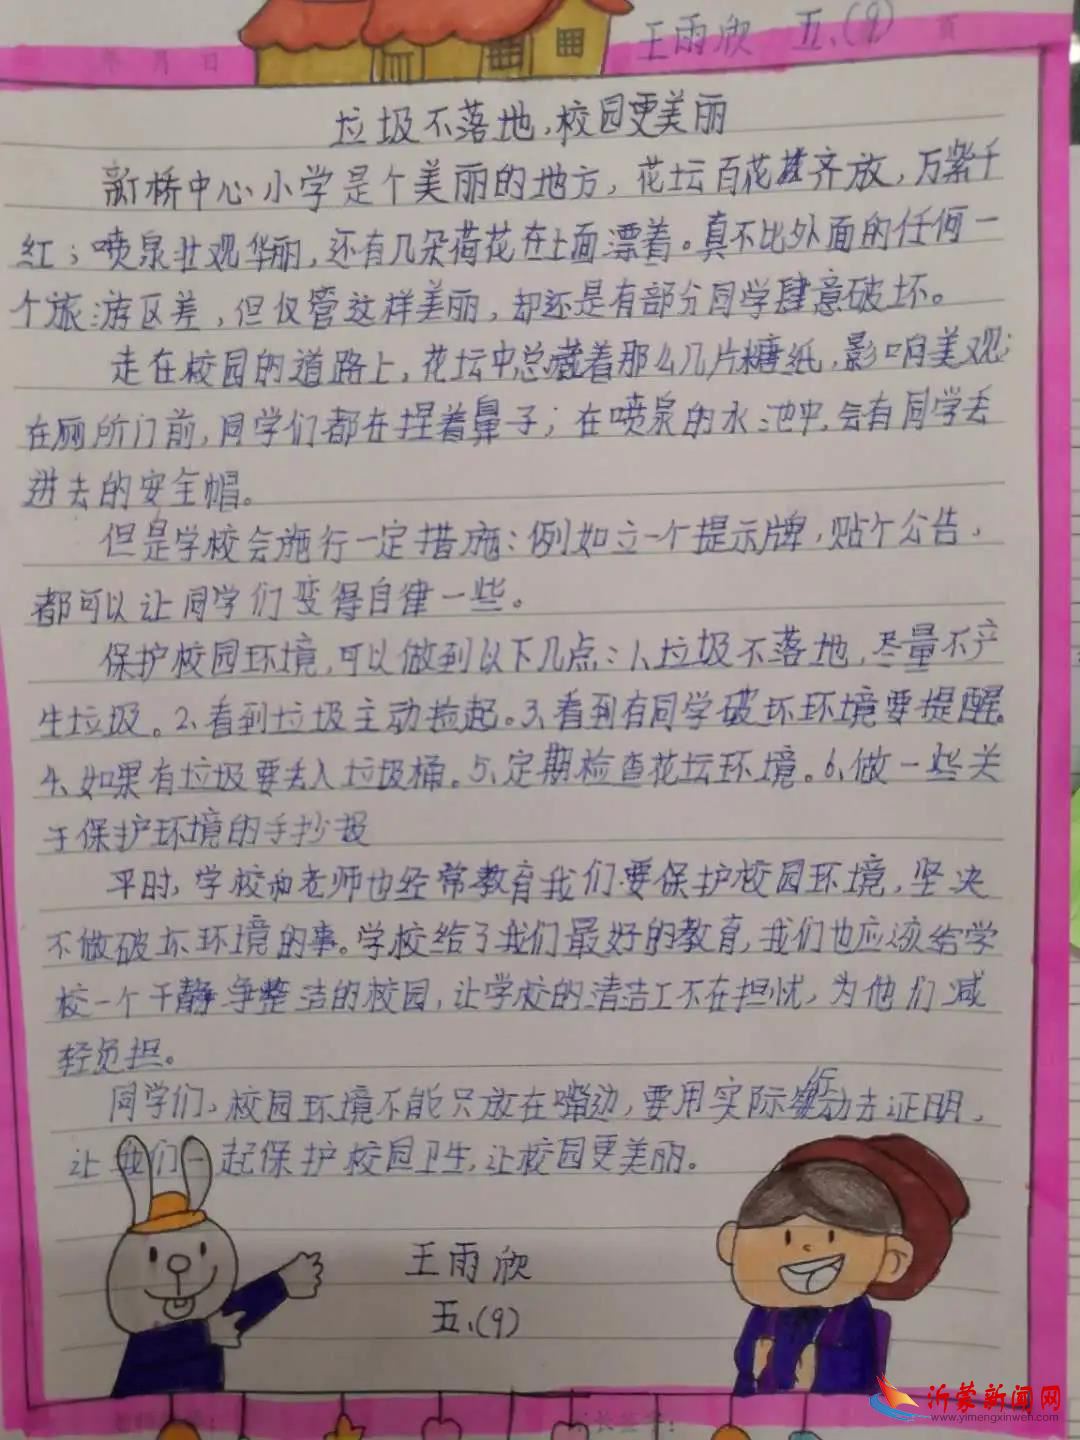 王雨欣 五.(9)
年 月 日 页
垃圾不落地,校园更美丽
新桥中心小学是个美丽的地方,花坛百花齐放,万紫千
红;喷泉壮观华丽,还有几朵荷花在上面漂着。真不比外面的任何一
个旅游区差,但仅管这样美丽,却还是有部分同学肆意破坏。
走在校园的道路上,花坛中总藏着那么几片糖纸,影响美观;
在厕所门前,同学们都在捏着鼻子;在喷泉的水池中,会有同学丢
进去的安全帽。
但是学校会施行一定措施:例如立一个提示牌,贴个公告,
都可以让同学们变得自律一些。
保护校园环境,可以做到以下几点:1、垃圾不落地,尽量不产
生垃圾。2、看到垃圾主动捡起。3、看到有同学破坏环境要提醒。
4、如果有垃圾要丢入垃圾桶。5、定期检查花坛环境。6、做一些关
于保护环境的手抄报
平时,学校和老师也经常教育我们要保护校园环境,坚决
不做破坏环境的事。学校给了我们最好的教育,我们也应该给学
校一个干静争整洁的校园,让学校的清洁工不在担忧,为他们减
轻负担。
同学们,校园环境不能只放在嘴边,要用实际行动去证明,
让我们一起保护校园卫生,让校园更美丽。
王雨欣
五.(9)
沂蒙新闻网
www.yimengxinwen.com